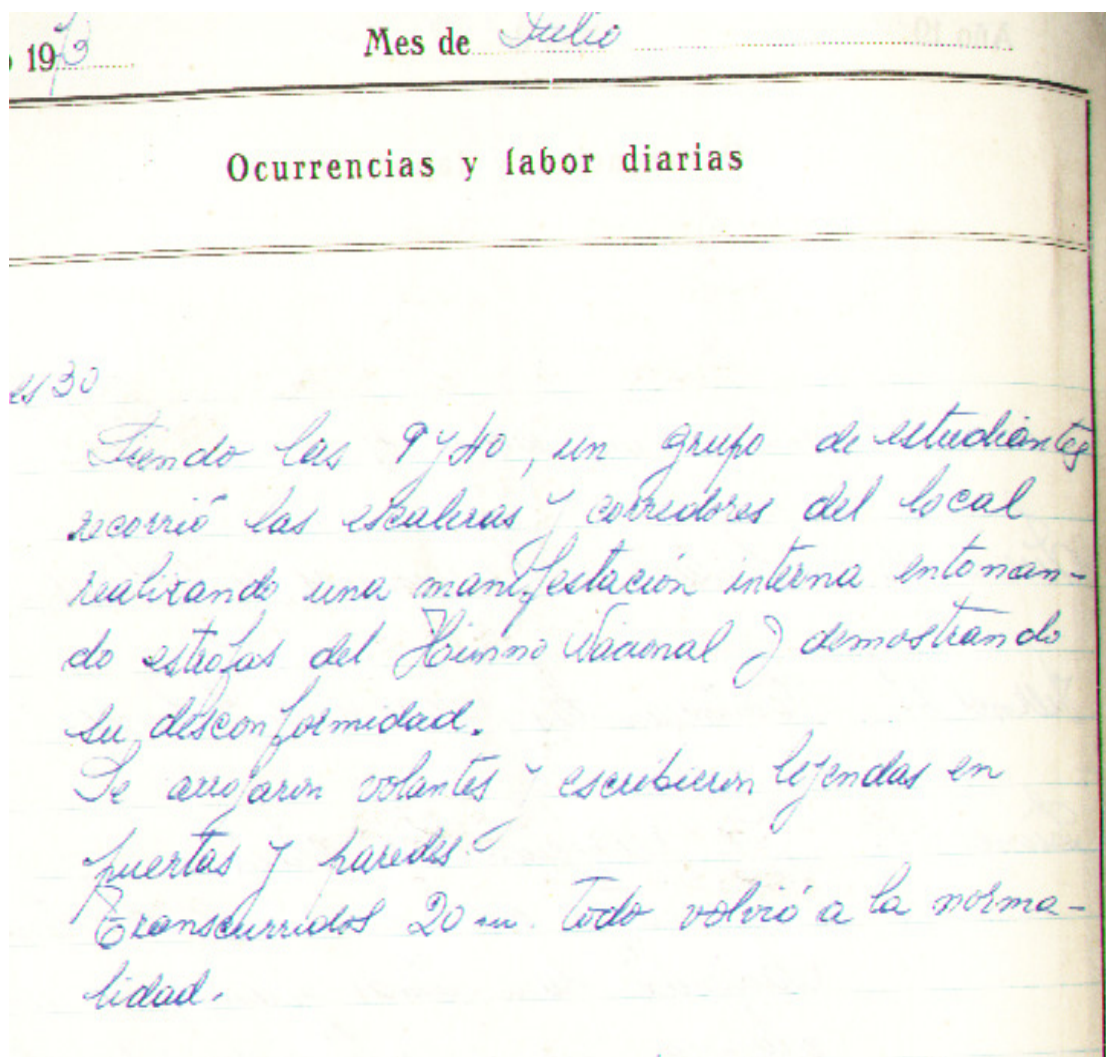 1973 Mes de Julio
Ocurrencias y labor diarias
es 30
Siendo las 9 y 40, un grupo de estudiantes
recorrió las escaleras y corredores del local
realizando una manifestación interna entonan-
do estrofas del Himno Nacional y demostrando
su desconformidad.
Se arrojaron volantes y escribieron leyendas en
puertas y paredes.
Transcurridos 20 m. todo volvió a la norma-
lidad.